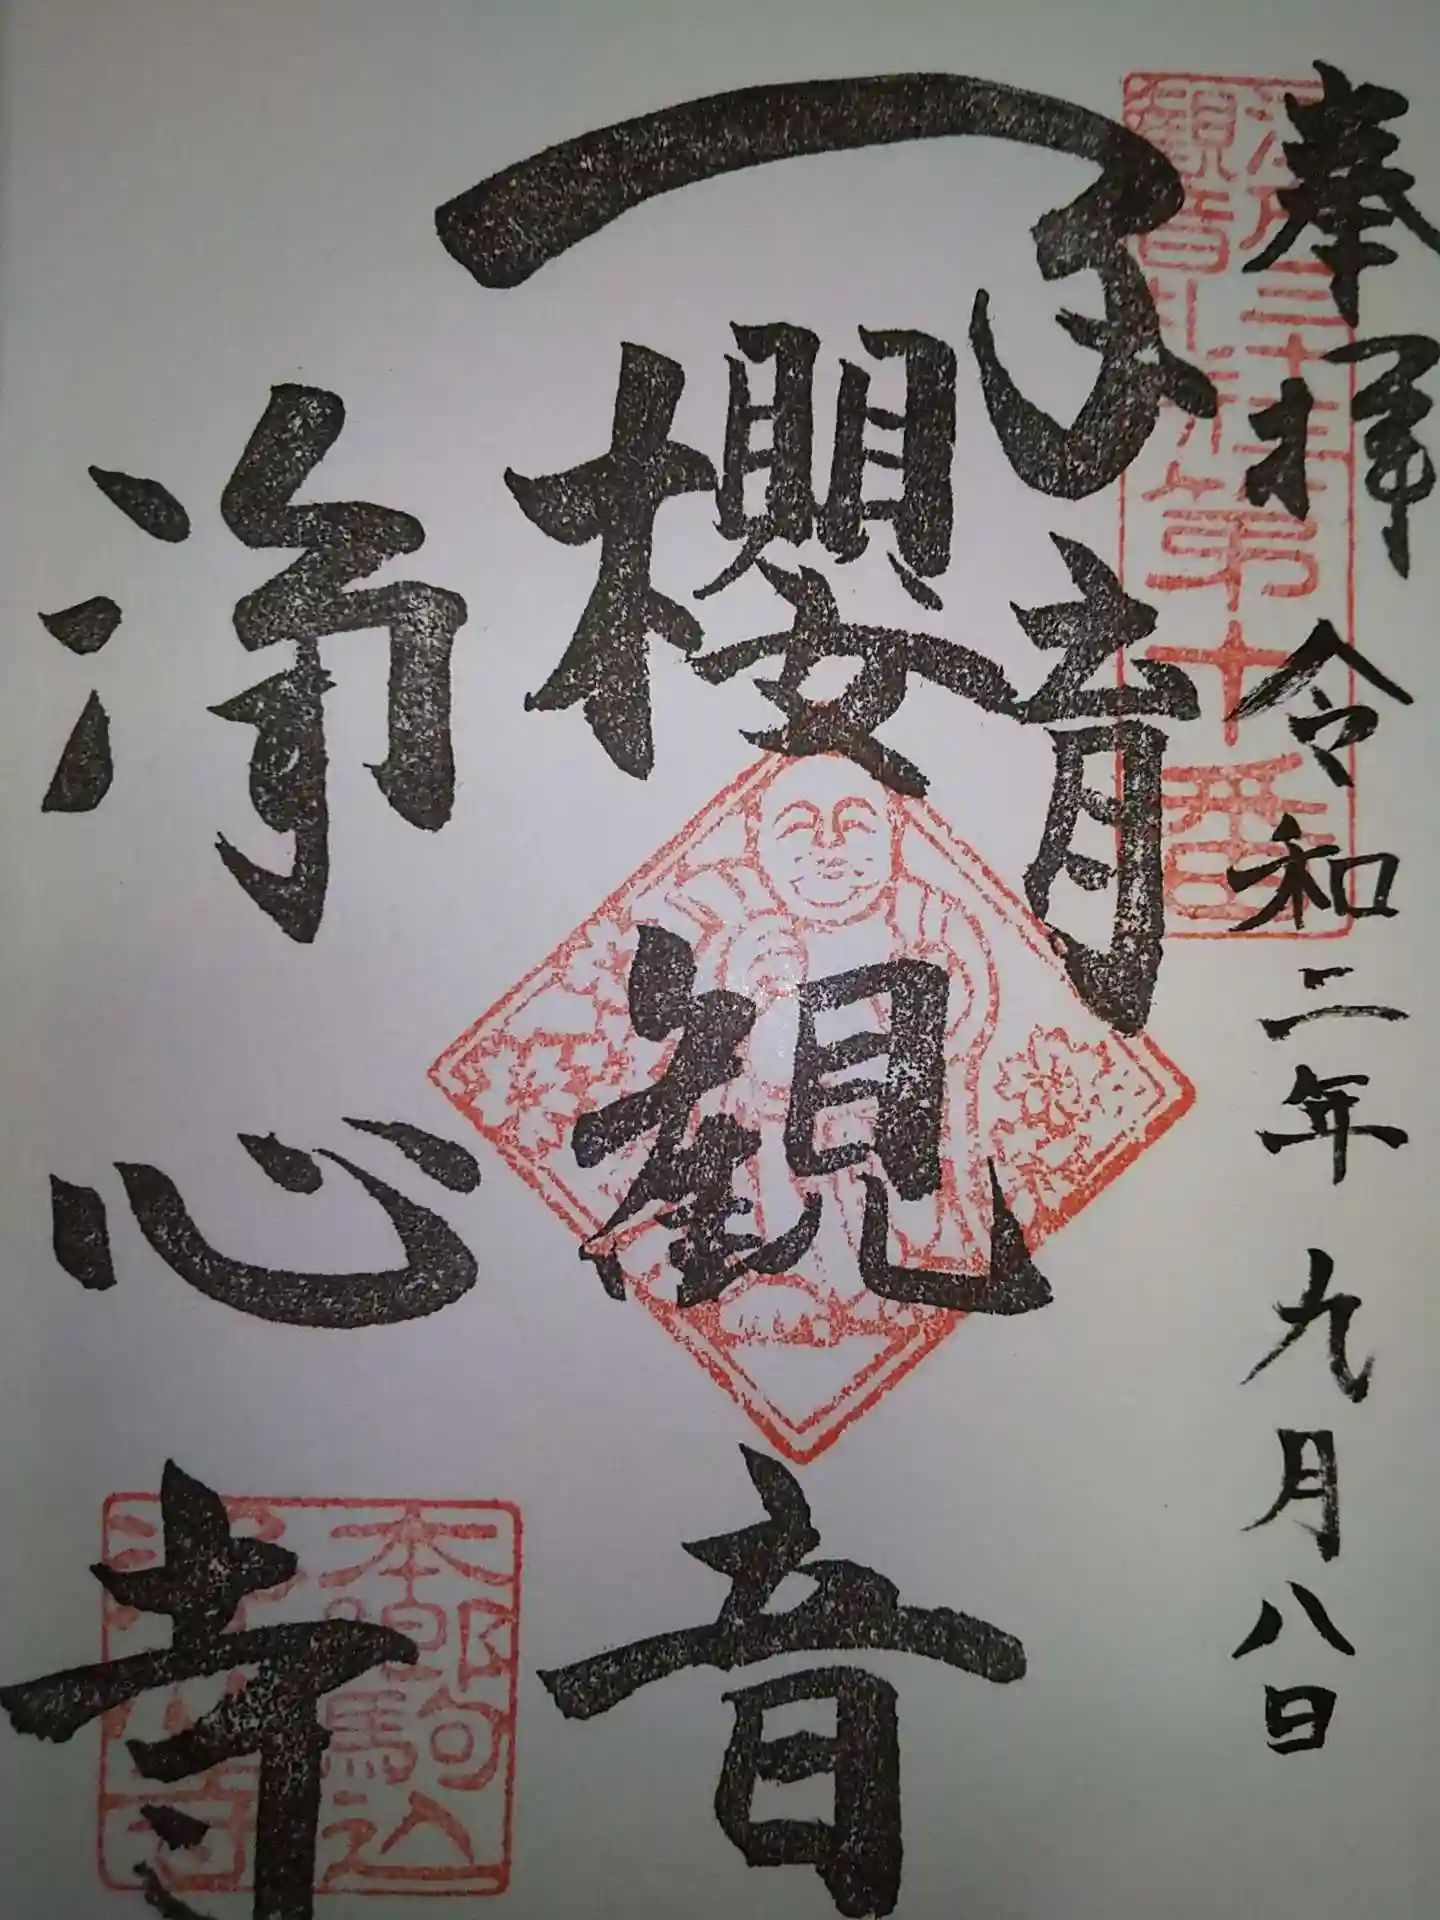 奉拝 令和二年九月八日
江戸三十三箇所
観音札所第十番
子育
櫻観音
浄心寺
本郷駒込
浄心寺